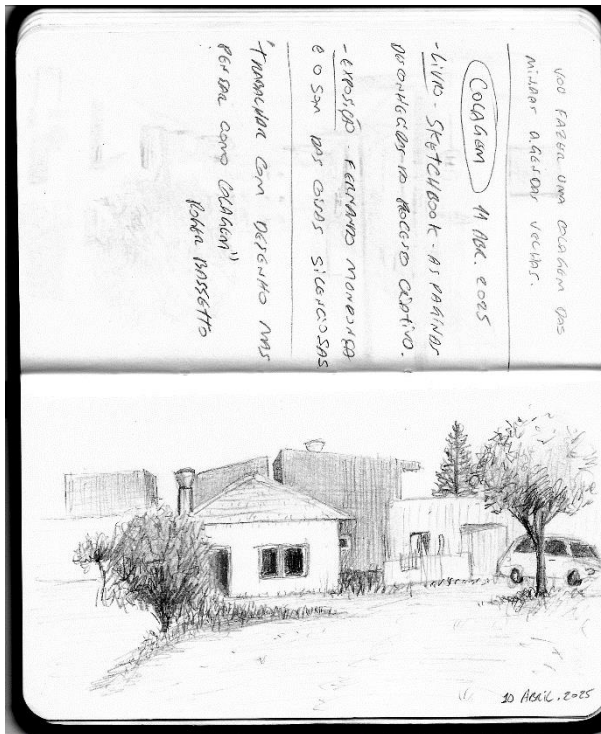 VOU FAZER UMA COLAGEM DAS
MINHAS AGENDAS VELHAS.
COLAGEM 11 ABR. 2025
- LIVRO - SKETCHBOOK - AS PAGINAS
DESCONHECIDAS DO PROCESSO CRIATIVO.
- EXPOSIÇÃO - FERNANDO MENDONÇA
E O SOM DAS COISAS SILENCIOSAS
"TRABALHAR COM DESENHO MAS
PENSAR COMO COLAGEM"
ROGER BASSETTO
10 ABRIL. 2025